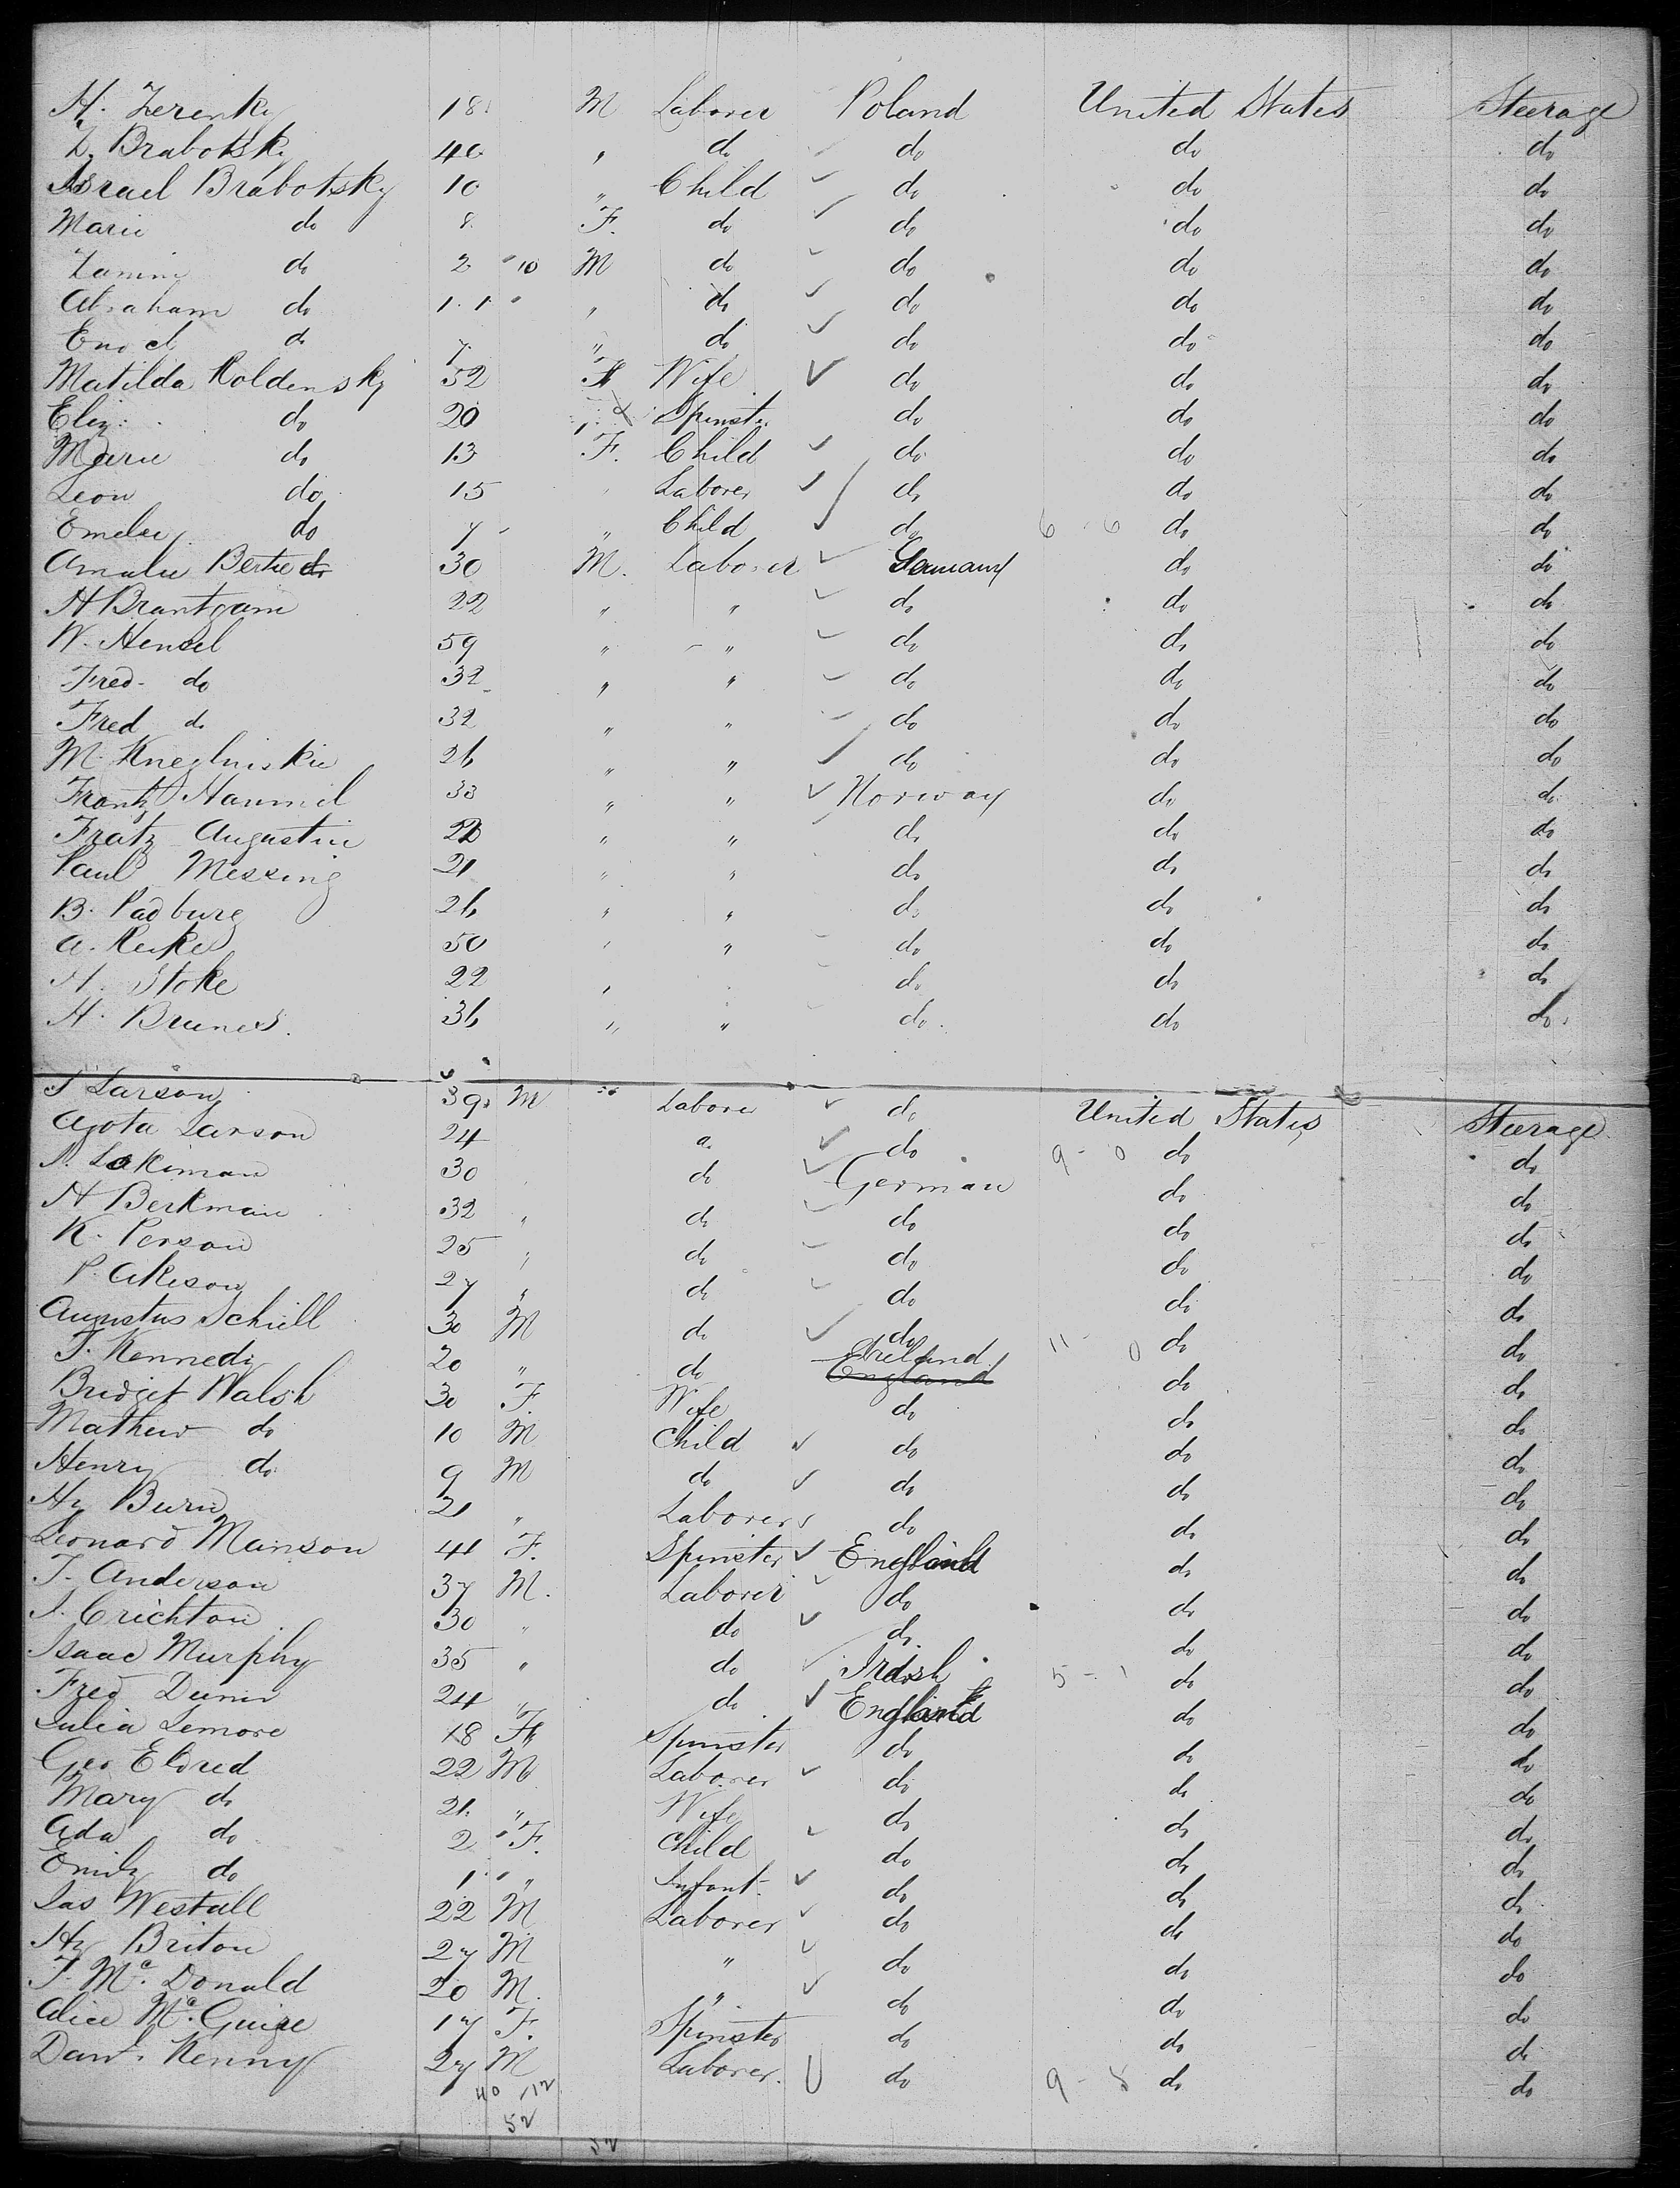 H. Zerenky 18 M Laborer Poland United States Steerage
Z. Brabotsky 40 " do do do do
Israel Brabotsky 10 " Child do do do
Marie do 8 F. do do do do
do 2 10 M do do do do
Abraham do 1. 1 " do do do do
do 7 " do do do do
Matilda Koldensky 52 F Wife do do do
Eliz: do 20 " Spinstr. do do do
Marie do 13 F. Child do do do
Leon do 15 Laborer do do do
Emelie do 7 " Child do 6 - 6 do do
Amalie Bertie do 30 M. Laborer Germany do do
H Brantgam 22 " " do do do
W. Hensel 59 " " do do do
Fred. do 32 " " do do do
Fred do 32 " " do do do
M. 26 " " do do do
Frantz Hammel 33 " " Norway do do
Fratz Augustin 22 " " do do do
Paul Messing 21 " " do do do
B. Padburg 26 " " do do do
A. Reike 50 " " do do do
H. Stoke 22 " do do do
H. Brunes. 36 " " do. do do.
S Larson 39 M Laborer do United States Steerage
Agota Larson 24 do 9 - 0 do do
30 do German do do
H Berkman 32 " do do do do
K. Person 25 " do do do do
P. Akeson 27 " do do do do
Augustus Schiell 30 M do do 11 0 do do
T. Kennedy 20 " do Ireland England do do
Bridget Walsh 30 F. Wife do do do
Mathew do 10 M Child do do do
Henry do 9 M do do do do
Hy Burn 21 " Laborers do do do
Leonard Manson 41 F. Spinster England do do
T. Anderson 37 M. Laborer do do do
J. Crichton 30 " do do. do do
Isaac Murphy 35 " do Irish 5 - 1 do do
Fred Dunn 24 " do England do do
Julia Lemore 18 F Spinster do do do
Geo Eldred 22 M Laborer do do do
Mary do 21. " Wife do do do
Ada do 2 F. Child do do do
Emily do 1 " Infant do do do
Jas Westall 22 M Laborer do do do
Hy Briton 27 M " do do do
T. Mc. Donald 20 M. " do do do
Alice Mc. Guire 17 F. Spinster do do do
Danl. Kenny 27 M Laborer. do 9 - 8 do do
40 12
52
52